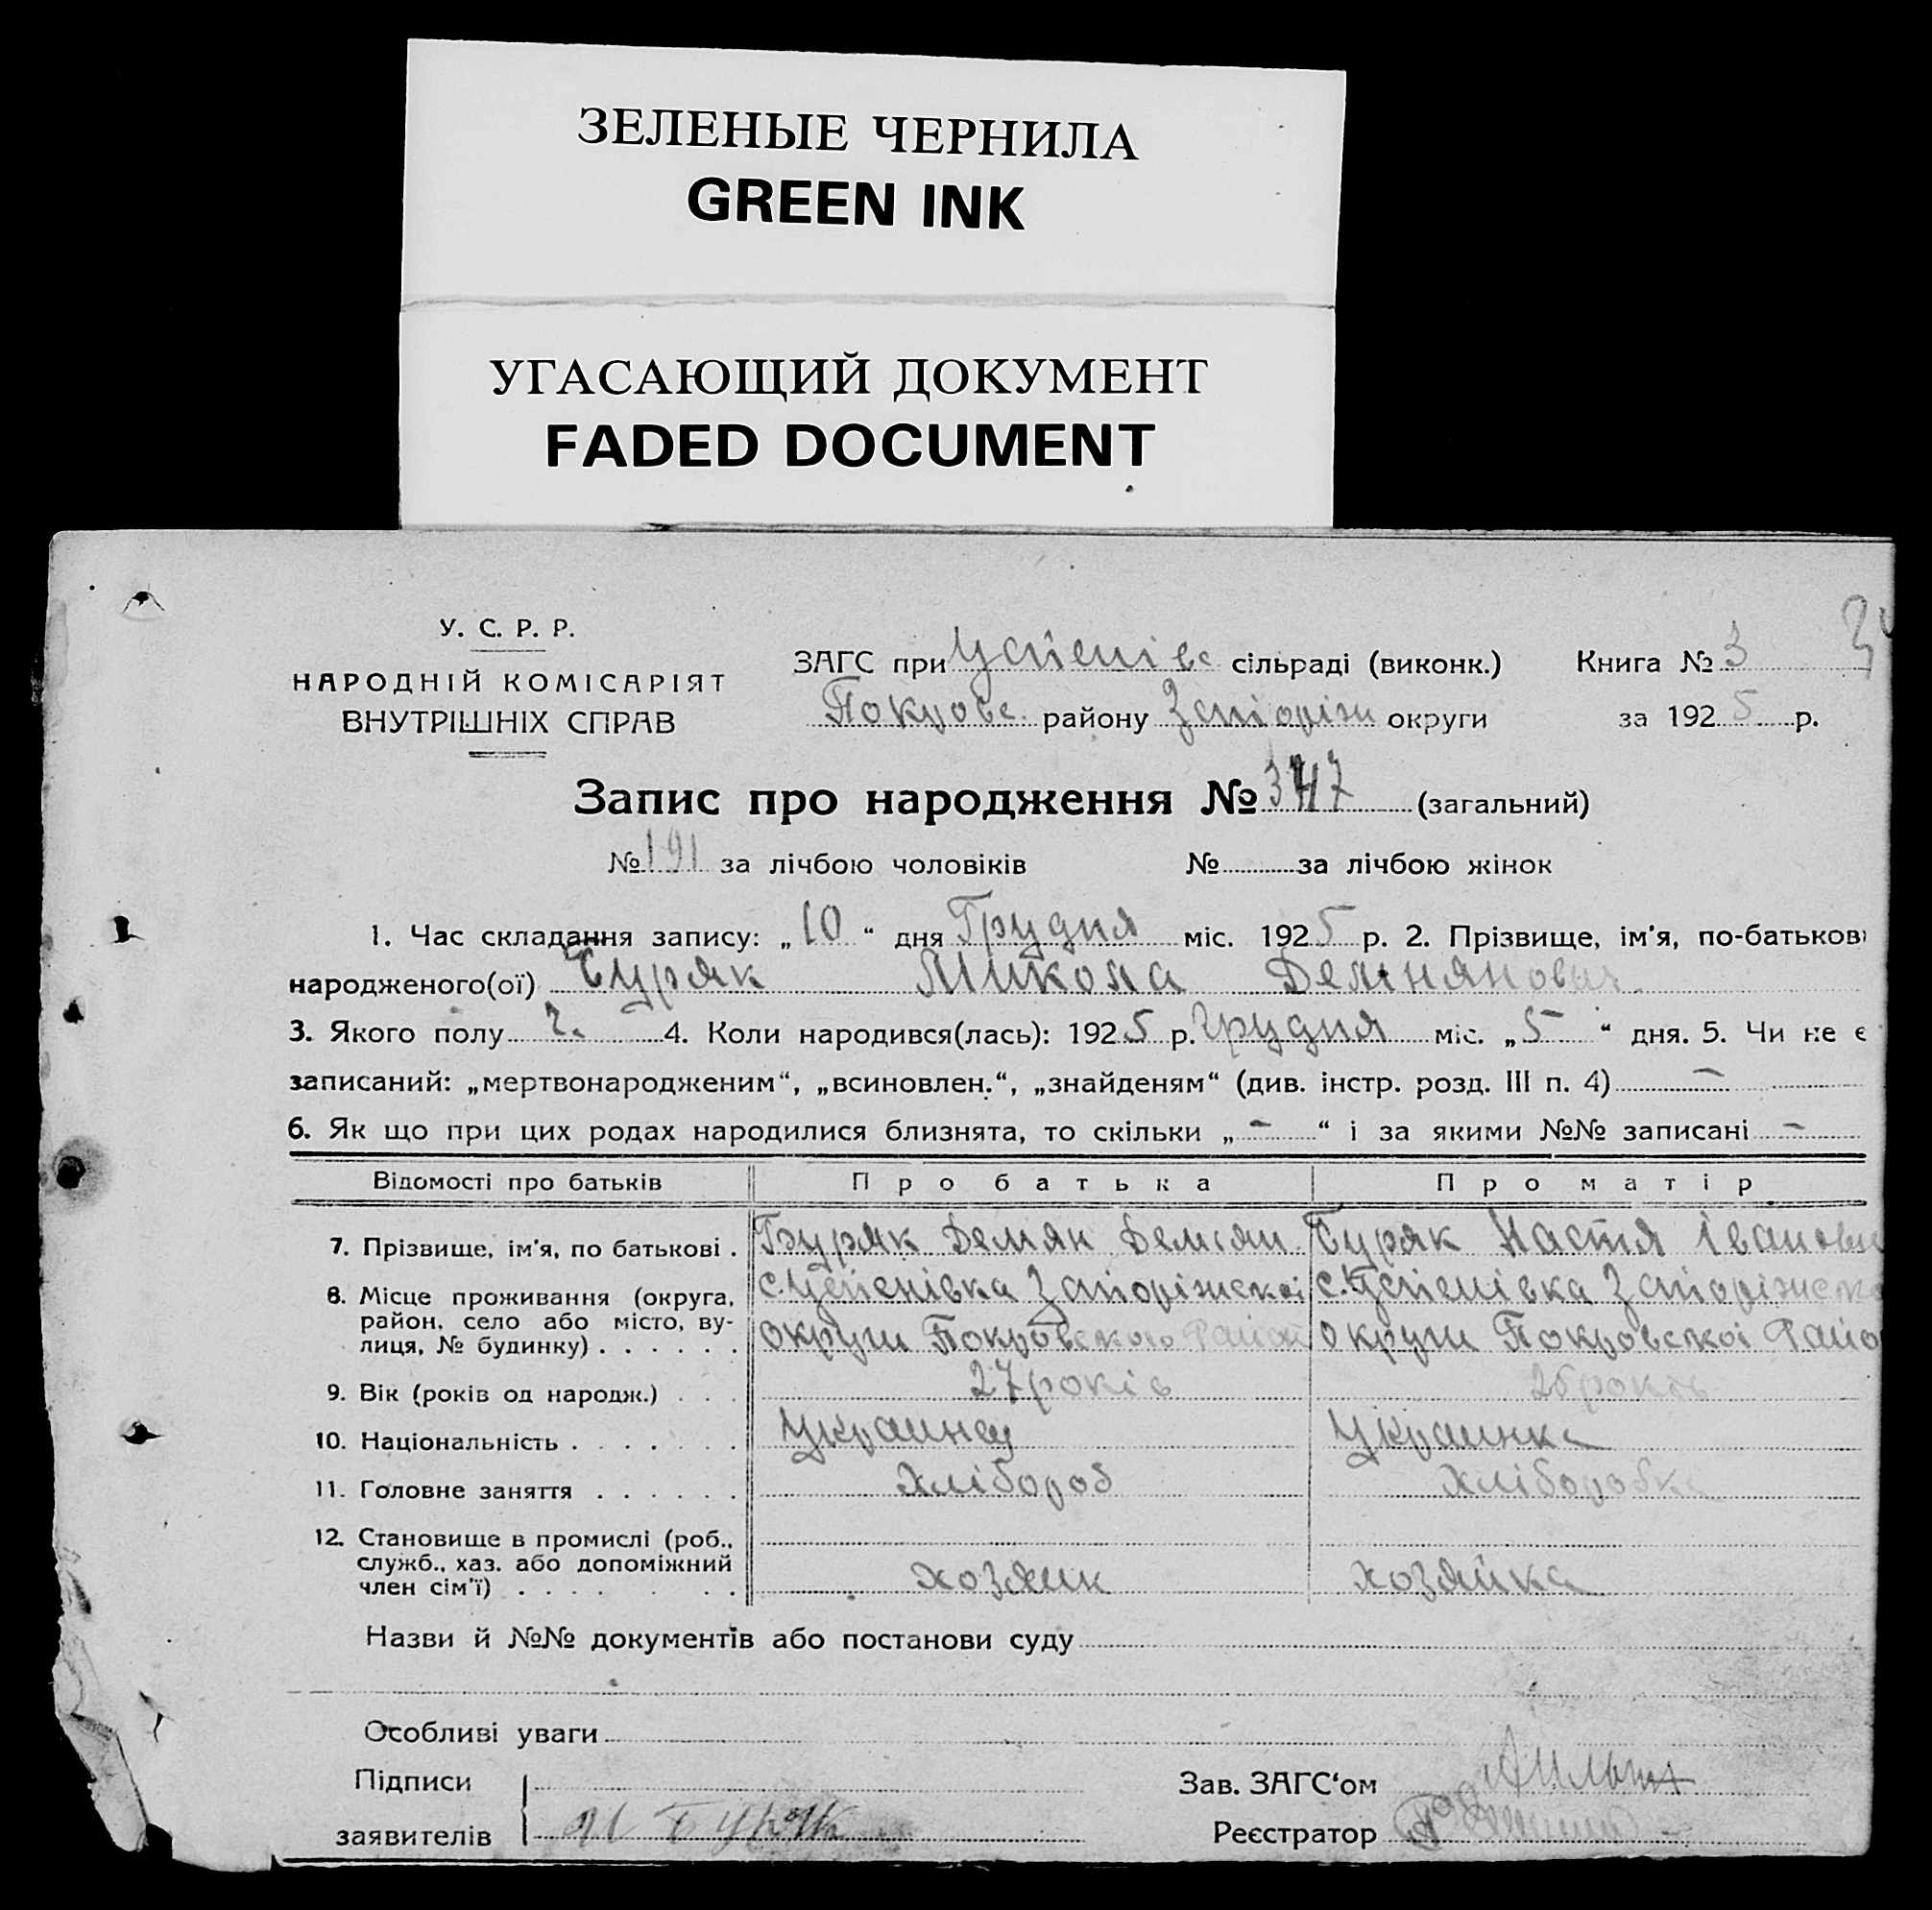 ЗЕЛЕНЫЕ ЧЕРНИЛА
GREEN INK
УГАСАЮЩИЙ ДОКУМЕНТ
FADED DOCUMENT
У. С. Р. Р.
НАРОДНІЙ КОМІСАРІЯТ
ВНУТРІШНІХ СПРАВ
ЗАГС при Успенівс сільраді (виконк.) Книга № 3
Покровс. району Запоріж округи за 1925 р.
Запис про народження № 347 (загальний)
№ 191 за лічбою чоловіків № за лічбою жінок
1. Час складання запису: „10“ дня Грудня міс. 1925 р. 2. Прізвище, ім'я, по-батькові
народженого(ої) Буряк Микола Демянович
3. Якого полу ч. 4. Коли народився(лась): 1925 р. Грудня міс. „5“ дня. 5. Чи не є
записаний: „мертвонародженим“, „всиновлен.“, „знайденям“ (див. інстр. розд. III п. 4) —
6. Як що при цих родах народилися близнята, то скільки „-“ і за якими №№ записані -
Відомості про батьків Про батька Про матір
7. Прізвище, ім'я, по батькові . Буряк Демян Демян. Буряк Настя Івановне
8. Місце проживання (округа, с. Успенівка Запоріжскоі с. Успенівка Запоріжско
район, село або місто, ву-
лиця, № будинку) . . . . . . округи Покровского Район округи Покровскоі Райо
9. Вік (років од народж.) . . . 27 років 25 років
10. Національність . . . . . . . Украинец Украинка
11. Головне заняття . . . . . . Хлібороб Хліборобка
12. Становище в промислі (роб.,
служб., хаз. або допоміжний
член сім'ї) . . . . . . . хозяин хозяйка
Назви й №№ документів або постанови суду
Особливі уваги
Підписи Зав. ЗАГС'ом
заявителів Буряк Реєстратор